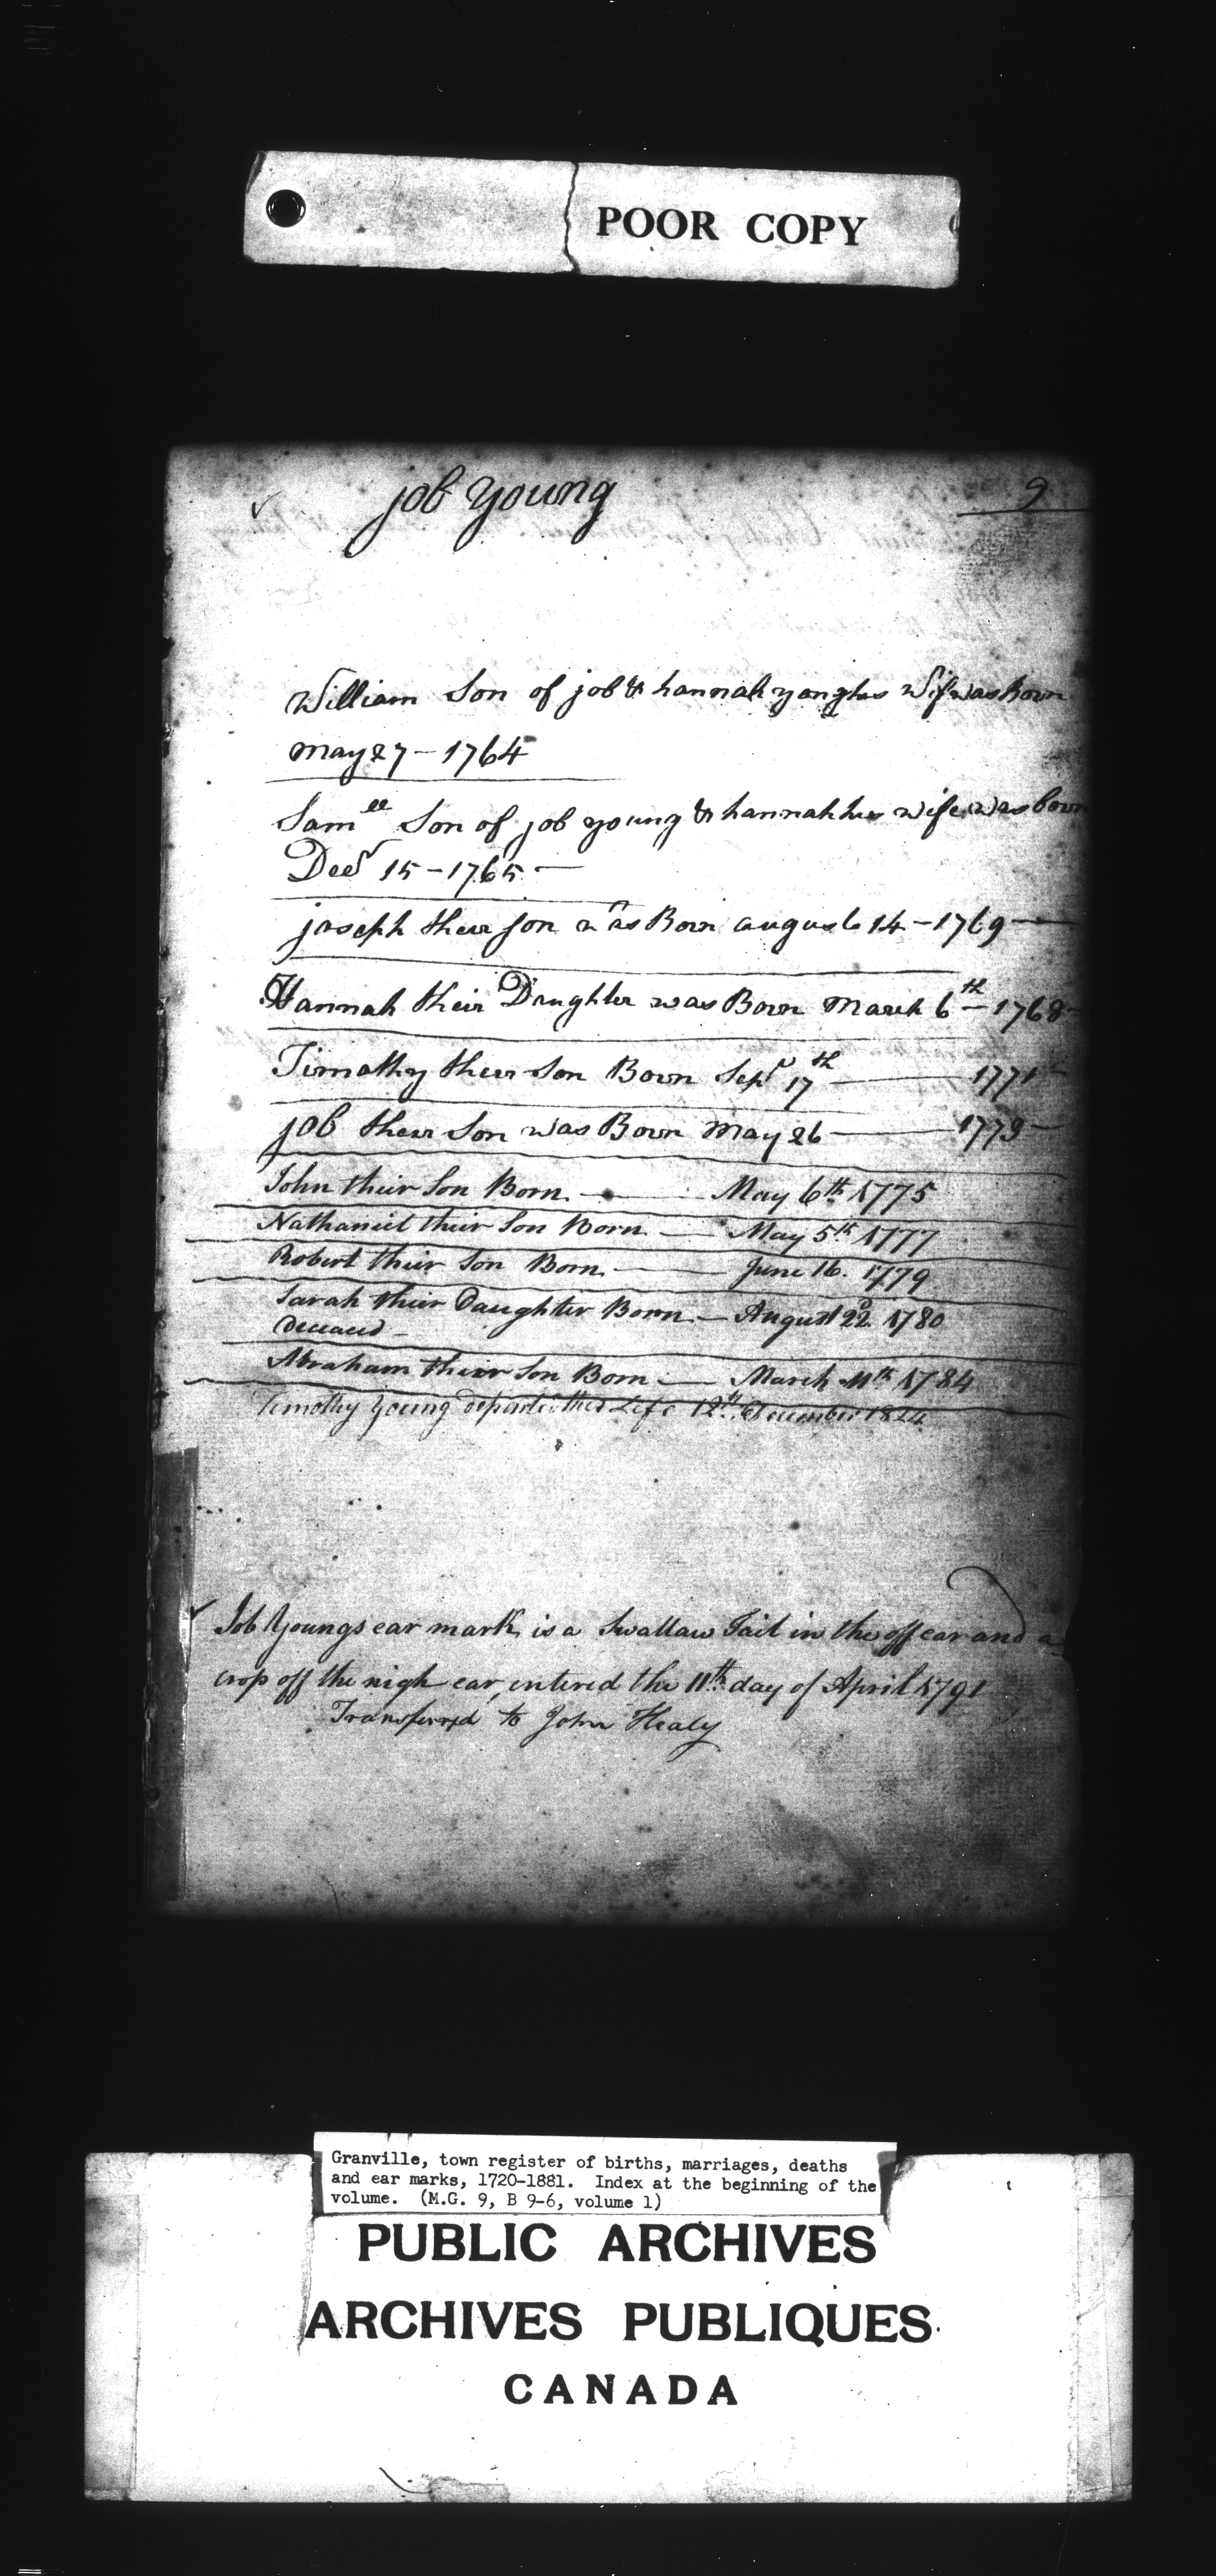 POOR COPY
job young
9
William Son of job & hannah yong his Wife was Born
may 27 - 1764
Samll Son of job young & hannah his wife was born
Decr 15 - 1765 -
joseph their son was Born august 14 - 1769
Hannah their Daughter was Born March 6th - 1768
Timothy their Son Born Sepr 17th 1771
job their Son was Born may 26 1773
John their Son Born May 6th 1775
Nathaniel their Son Born May 5th 1777
Robert their Son Born June 16. 1779
Sarah their Daughter Born - August 22d 1780
Deceased -
Abraham their Son Born March 11th 1784
Timothy Young departed this Life 12th December 1824
Job Youngs ear mark is a Swallow Tail in the off ear and a
crop off the nigh ear, entered the 11th day of April 1791
Transferred to John Healy
Granville, town register of births, marriages, deaths
and ear marks, 1720-1881. Index at the beginning of the
volume. (M.G. 9, B 9-6, volume 1)
PUBLIC ARCHIVES
ARCHIVES PUBLIQUES
CANADA